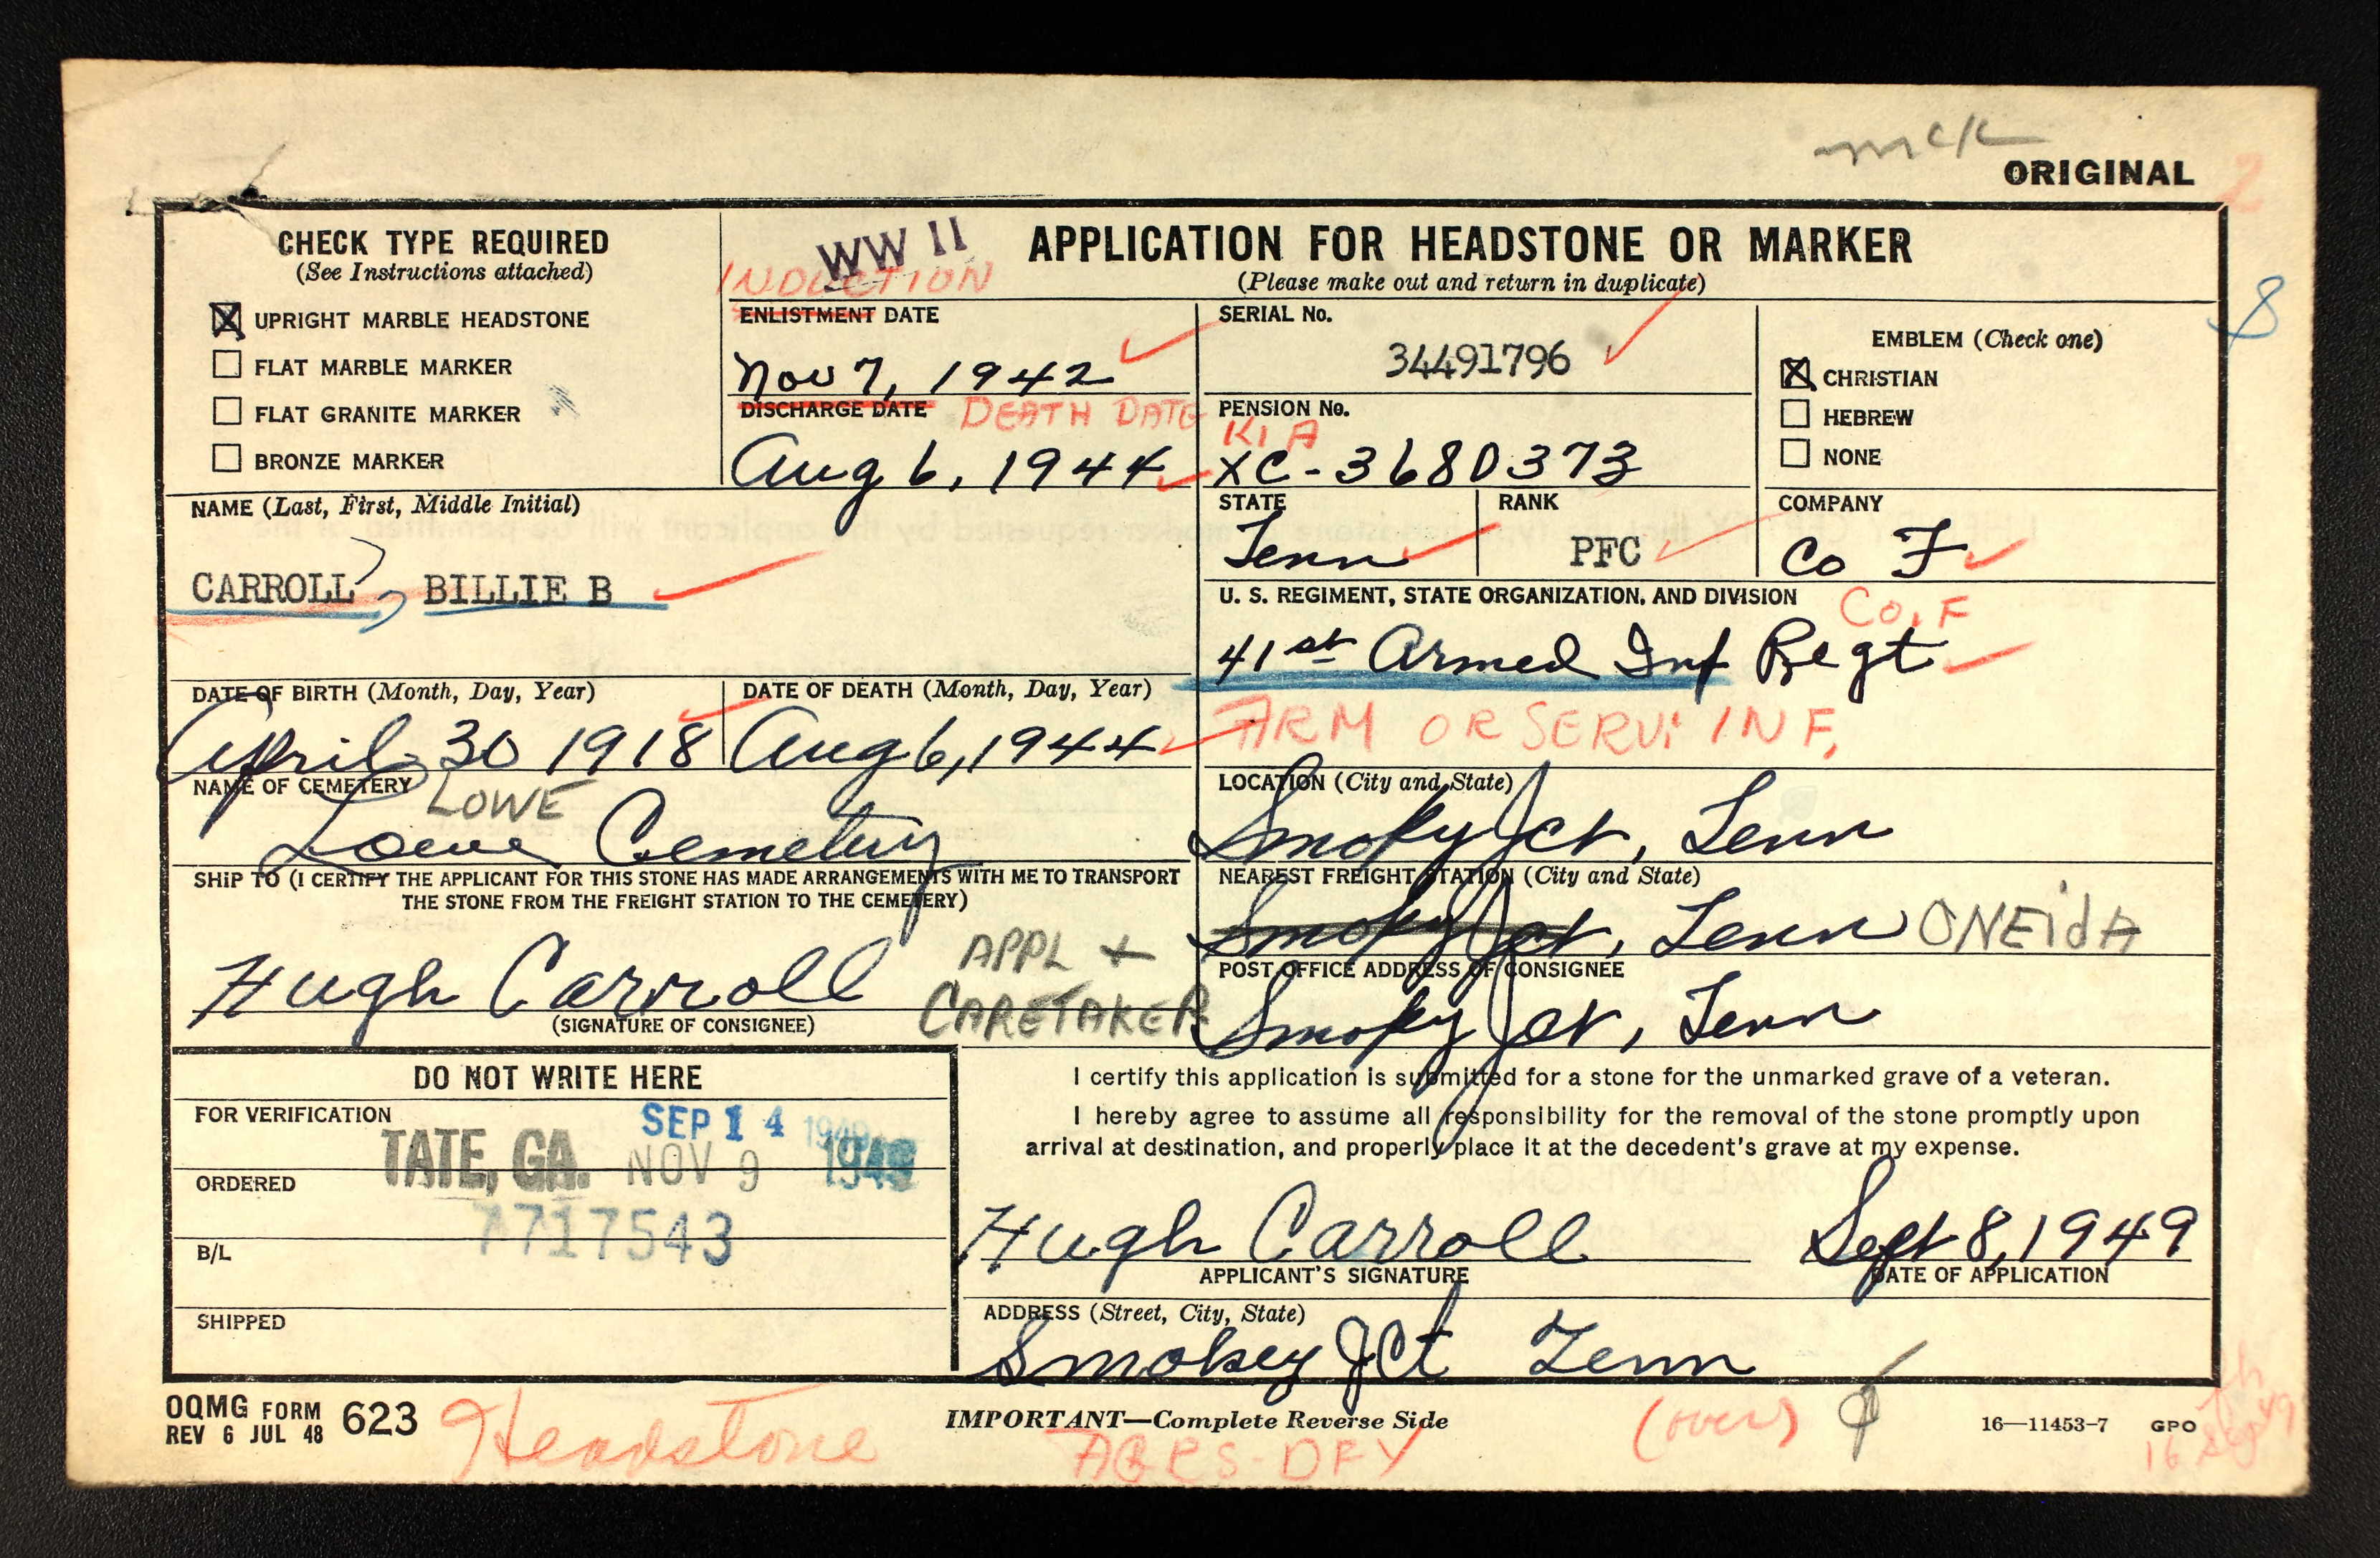 mck
ORIGINAL
2
CHECK TYPE REQUIRED
(See Instructions attached)
UPRIGHT MARBLE HEADSTONE
FLAT MARBLE MARKER
FLAT GRANITE MARKER
BRONZE MARKER
WW II
APPLICATION FOR HEADSTONE OR MARKER
(Please make out and return in duplicate)
8
INDUCTION
ENLISTMENT DATE
Nov 7, 1942
SERIAL No.
34491796
EMBLEM (Check one)
CHRISTIAN
HEBREW
NONE
DISCHARGE DATE DEATH DATE
Aug 6, 1944
PENSION No.
KIA
XC-3680373
NAME (Last, First, Middle Initial)
CARROLL, BILLIE B
STATE
Tenn
RANK
PFC
COMPANY
Co F
U. S. REGIMENT, STATE ORGANIZATION, AND DIVISION
Co. F
41st Armed Inf Regt
ARM OR SERV: INF.
DATE OF BIRTH (Month, Day, Year)
April 30 1918
DATE OF DEATH (Month, Day, Year)
Aug 6, 1944
NAME OF CEMETERY
LOWE
Lowe Cemetery
LOCATION (City and State)
Smoky Jct, Tenn
SHIP TO (I CERTIFY THE APPLICANT FOR THIS STONE HAS MADE ARRANGEMENTS WITH ME TO TRANSPORT
THE STONE FROM THE FREIGHT STATION TO THE CEMETERY)
NEAREST FREIGHT STATION (City and State)
Smoky Jct, Tenn ONEIdA
Hugh Carroll
(SIGNATURE OF CONSIGNEE)
APPL +
CARETAKER
POST OFFICE ADDRESS OF CONSIGNEE
Smoky Jct, Tenn
DO NOT WRITE HERE
FOR VERIFICATION
SEP 14 1949
TATE, GA. NOV 9 1949
ORDERED
7717543
B/L
SHIPPED
I certify this application is submitted for a stone for the unmarked grave of a veteran.
I hereby agree to assume all responsibility for the removal of the stone promptly upon
arrival at destination, and properly place it at the decedent's grave at my expense.
Hugh Carroll
APPLICANT'S SIGNATURE
Sept 8, 1949
DATE OF APPLICATION
ADDRESS (Street, City, State)
Smokey Jct Tenn
OQMG FORM 623
REV 6 JUL 48
Headstone
IMPORTANT—Complete Reverse Side
(over)
16—11453-7 GPO